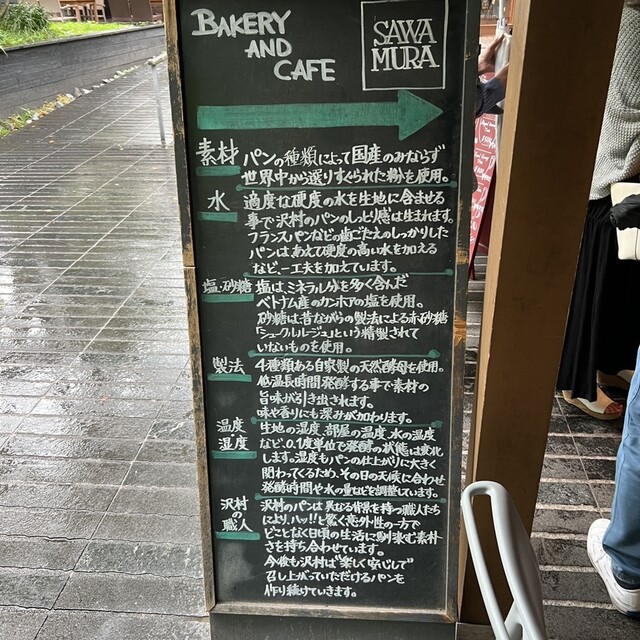 BAKERY
AND
CAFE
SAWA
MURA
素材 パンの種類によって国産のみならず
世界中から選りすぐられた粉を使用。
水 適度な硬度の水を生地に含ませる
事で沢村のパンのしっとり感は生まれます。
フランスパンなどの歯ごたえのしっかりした
パンはあえて硬度の高い水を加える
など、一工夫を加えています。
塩・砂糖 塩は、ミネラル分を多く含んだ
ベトナム産のカンホアの塩を使用。
砂糖は昔ながらの製法による赤砂糖
「シュークルルージュ」という精製されて
いないものを使用。
製法 4種類ある自家製の天然酵母を使用。
低温長時間発酵する事で素材の
旨味が引き出されます。
味や香りにも深みが加わります。
温度 生地の温度、部屋の温度、水の温度
湿度 など、0.1度単位で発酵の状態は変化
します。湿度もパンの仕上がりに大きく
関わってくるため、その日の天候に合わせ
発酵時間や水の量などを調整しています。
沢村 沢村のパンは異なる背景を持つ職人たち
の により、ハッ!!と驚く意外性の一方で
職人 どことなく日頃の生活に馴染む素朴
さを持ち合わせています。
今後も沢村は"楽しく安心して"
召し上がっていただけるパンを
作り続けていきます。